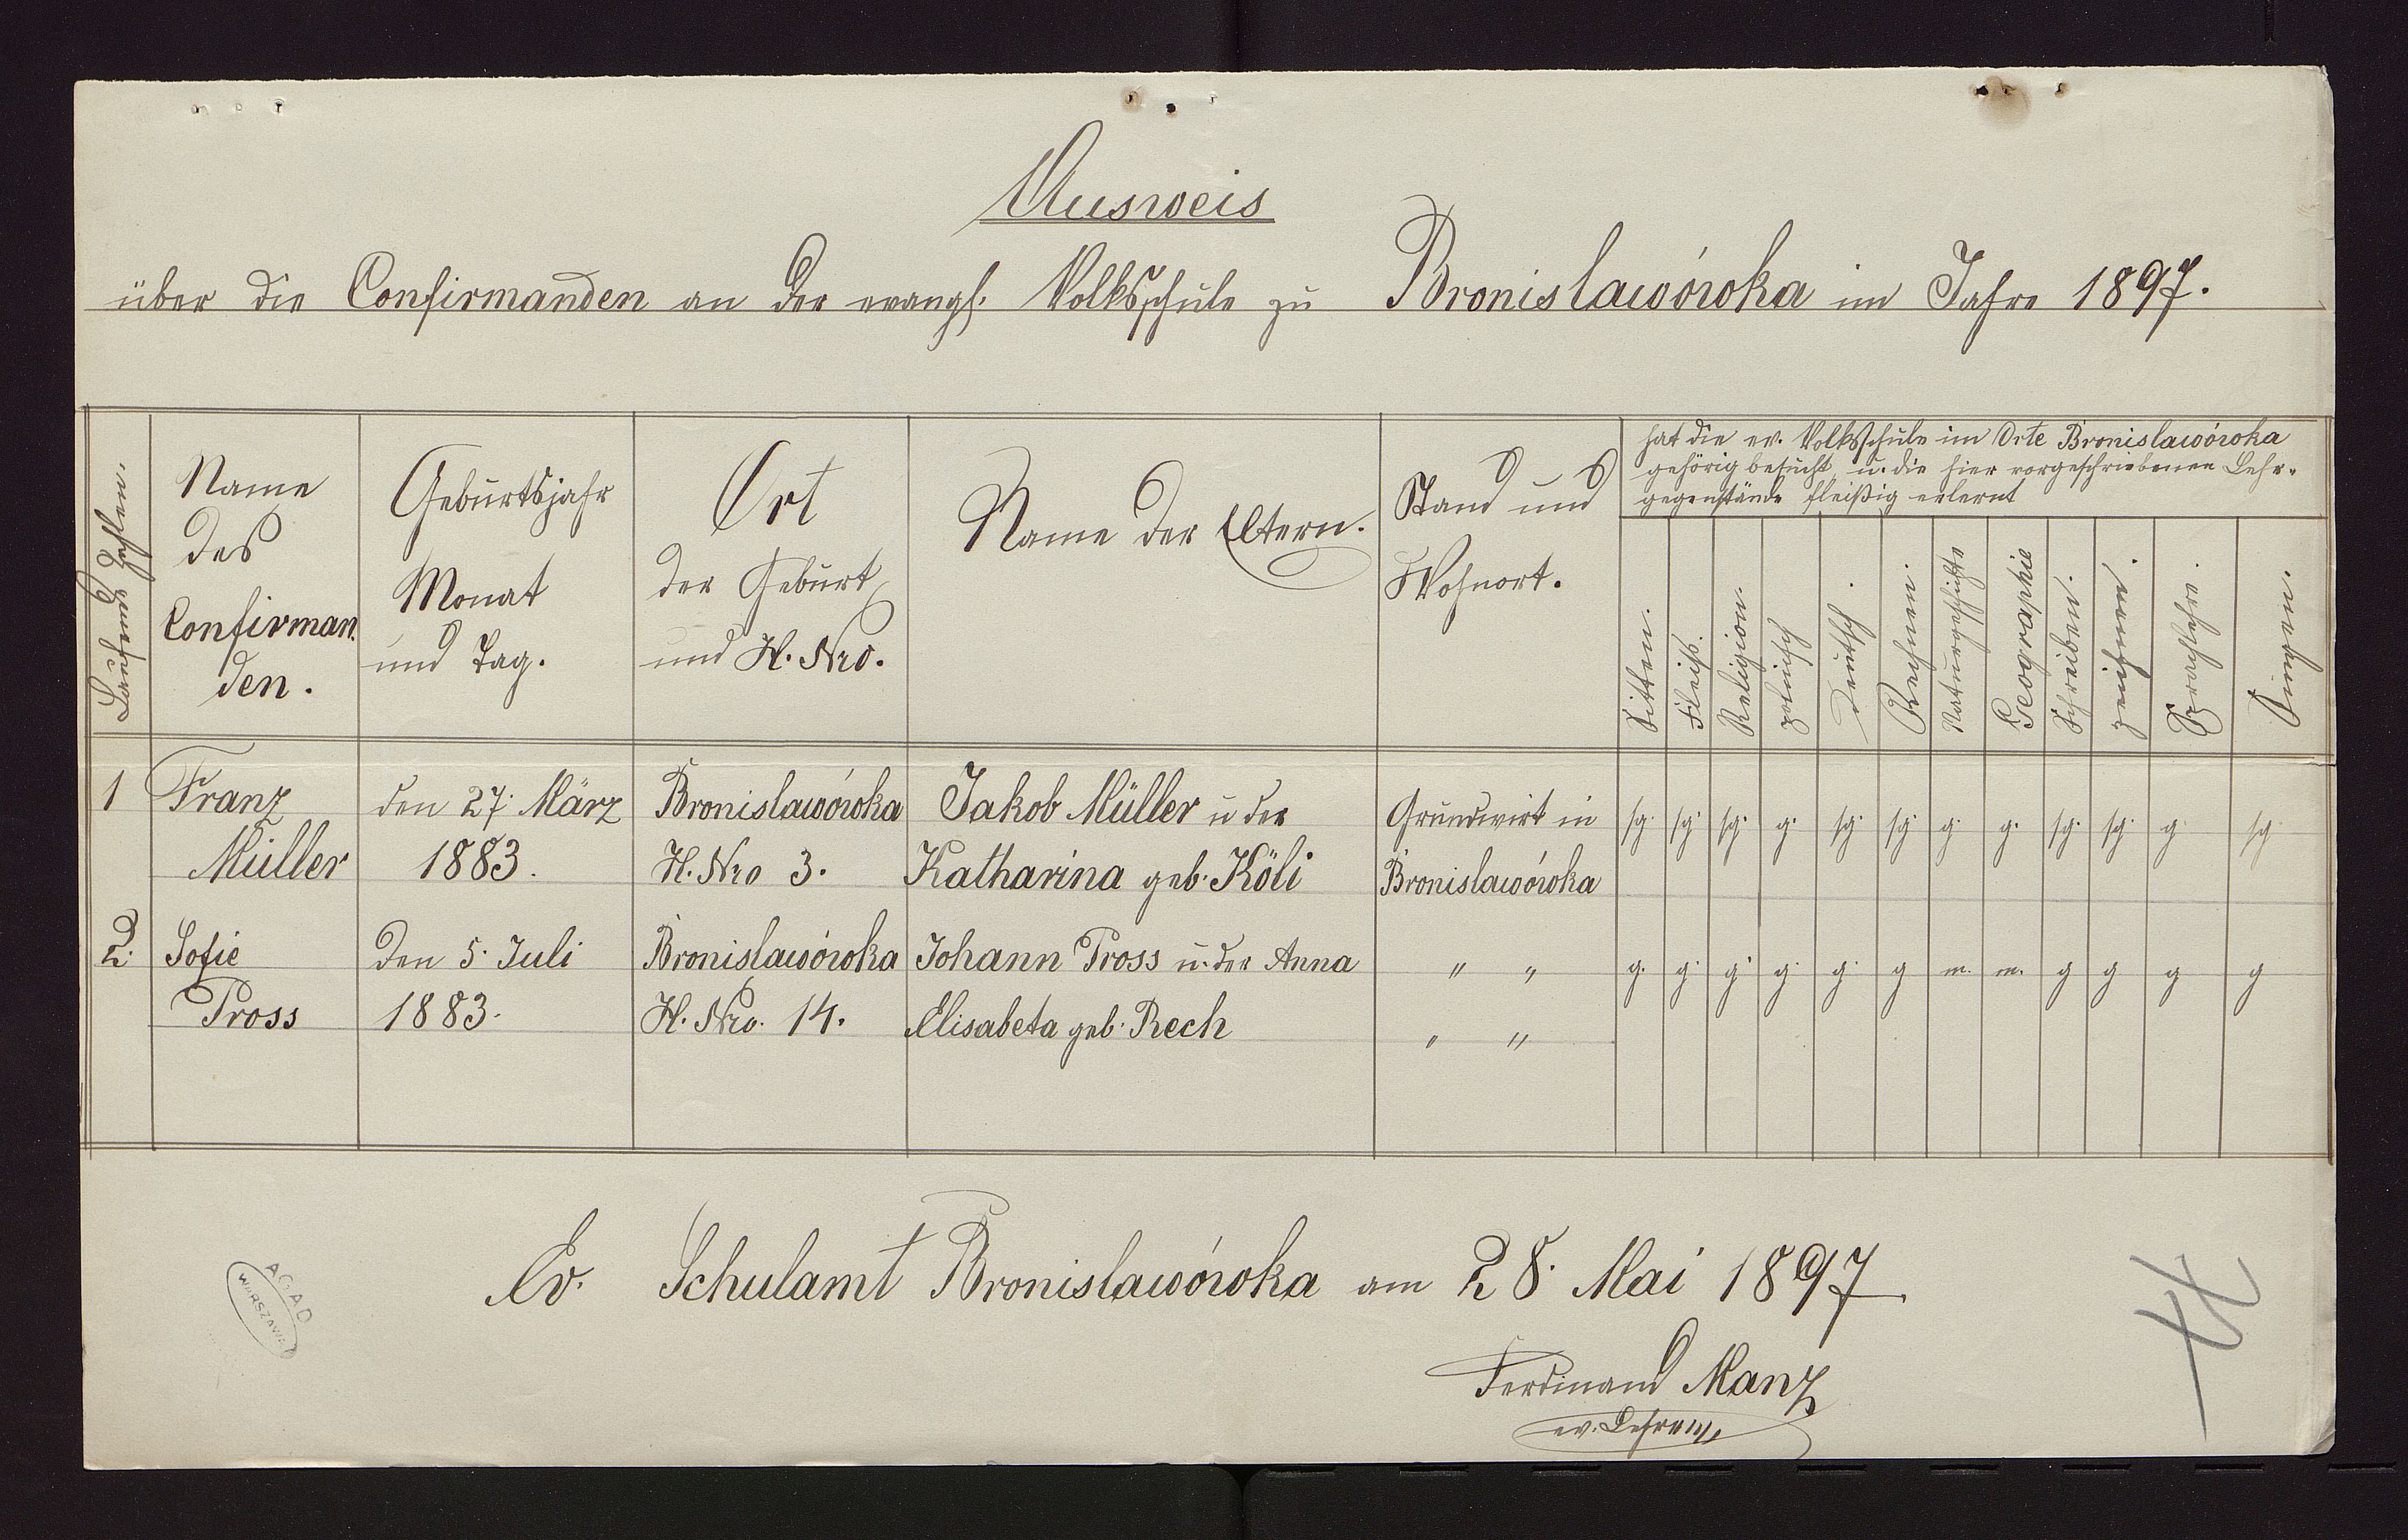 Ausweis
über die Confirmanden an der evangl. Volksschule zu Bronislawówka im Jahre 1897.
Laufende Zahlen.
Name
des
Confirman
den.
Geburtsjahr
Monat
und Tag.
Ort
der Geburt
und H. Nro.
Name der Eltern.
Stand und
Wohnort.
hat die ev. Volksschule im Orte Bronislawówka
gehörig besucht u. die hier vorgeschriebenen Lehr-
gegenstände fleißig erlernt
Sitten.
Fleiß.
Religion.
polnisch
Deutsch.
Rechnen.
Naturgeschichte
Geographie
Schreiben.
zeichnen.
Sprachlehre.
Singen.
1 Franz den 27. März Bronislawówka Jakob Müller u der Grundwirt in sg. sg. sg. g. sg. sg. g. g. sg. sg. g. sg
Müller 1883. H. Nro 3. Katharina geb. Köli Bronislawówka
2. Sofie den 5. Juli Bronislawówka Johann Pross u. der Anna " " g. g. g. g. g. g m. m. g g g g
Pross 1883. H. Nro. 14. Elisabeta geb. Rech " "
Ev. Schulamt Bronislawówka am 28. Mai 1897.
Ferdinand Manz
ev. Lehrer
AGAD
WARSZAWA